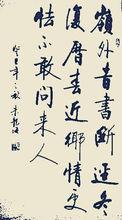 嶺外音書斷經冬
復曆春近鄉情更
怯不敢問來人
癸巳年